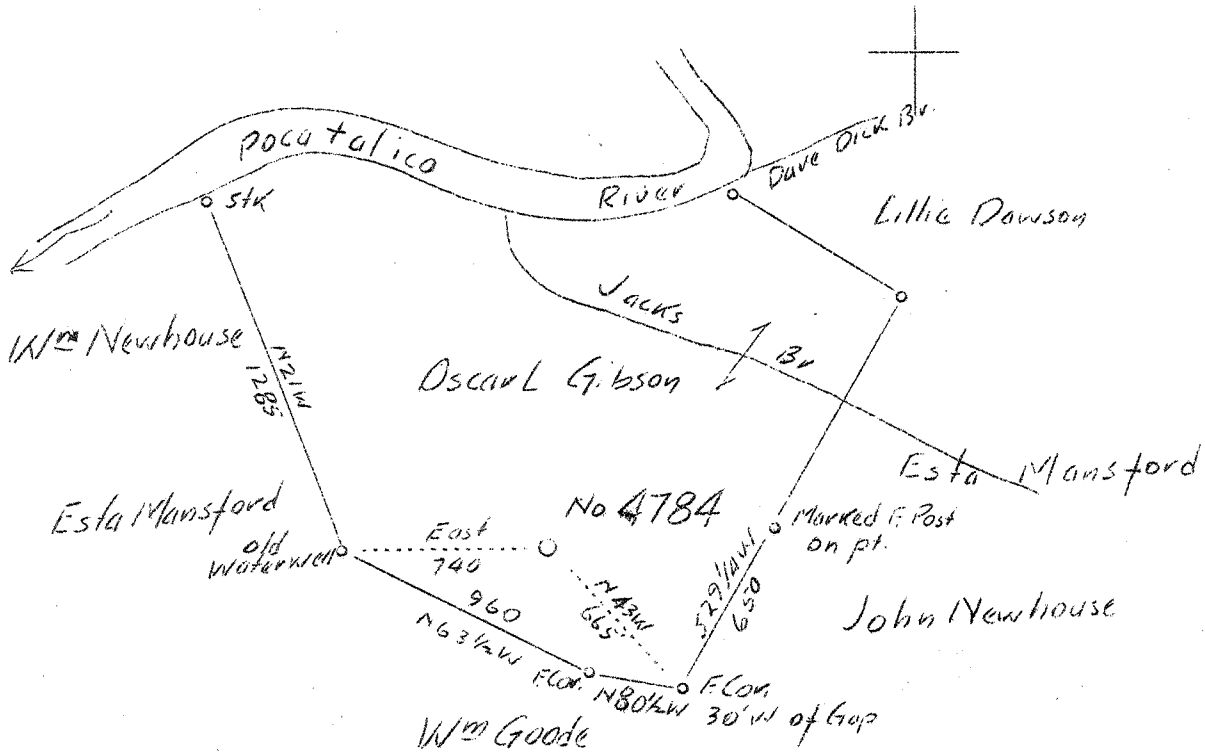 Pocatalico
River
Dave Dick Br.
Stk
Lillie Dawson
Jacks
Br
Wm Newhouse
N21W
1285
Oscar L Gibson
Esta Mansford
Esta Mansford
old
Waterwell
East
740
No 4784
Marked F. Post
on pt.
N43W
665
S29 1/4 W
650
960
N63 1/2 W
John Newhouse
F.Cor.
N80 1/2 W
F.Cor.
30' W of Gap
Wm Goode